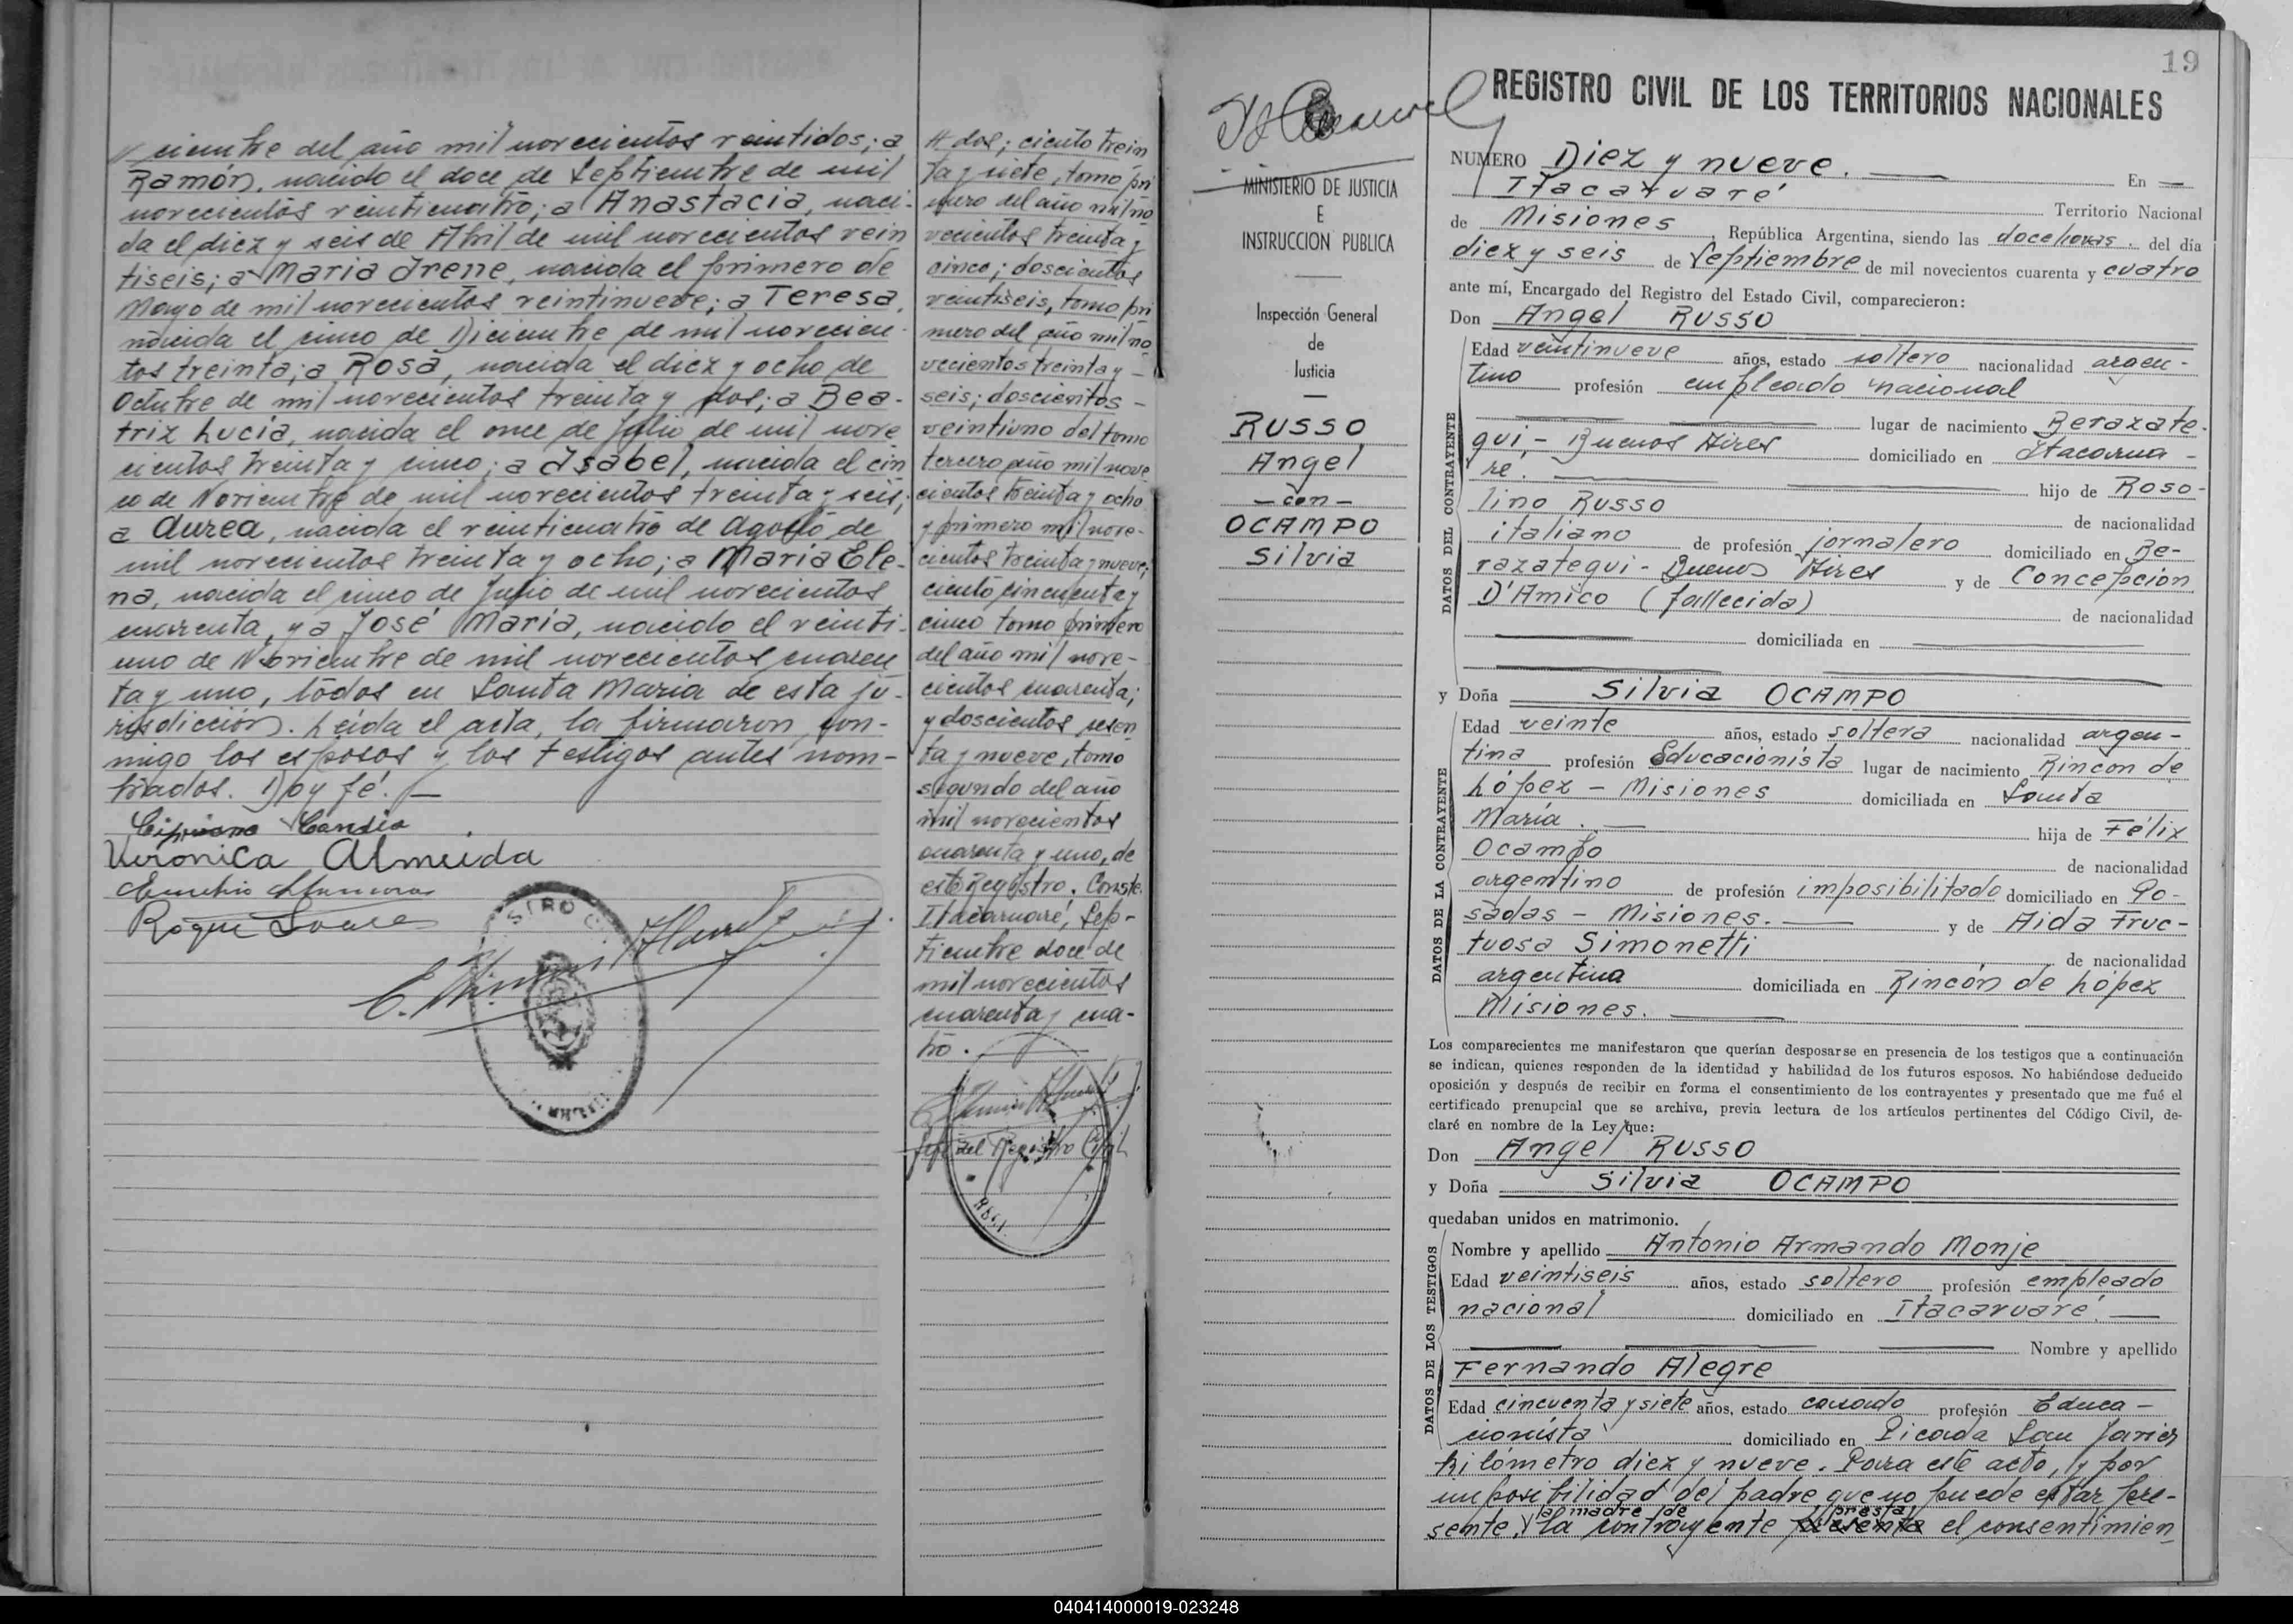 ciembre del año mil novecientos veintidos; a
Ramón, nacido el doce de Septiembre de mil
novecientos veinticuatro; a Anastacia, naci-
da el diez y seis de Abril de mil novecientos vein
tiseis; a Maria Irene, nacida el primero de
Mayo de mil novecientos veintinueve; a Teresa,
nacida el cinco de Diciembre de mil novecien-
tos treinta; a Rosa, nacida el diez y ocho de
Octubre de mil novecientos treinta y dos; a Bea-
triz Lucía, nacida el once de Julio de mil nove
cientos treinta y cinco; a Isabel, nacida el cin
co de Noviembre de mil novecientos treinta y seis;
a Aurea, nacida el veinticuatro de Agosto de
mil novecientos treinta y ocho; a María Ele-
na, nacida el cinco de Julio de mil novecientos
cuarenta, y a José María, nacido el veinti-
uno de Noviembre de mil novecientos cuaren
ta y uno, todos en Santa Maria de esta ju-
risdicción. Leída el acta, la firmaron con-
migo los esposos y los testigos antes nom-
brados. Doy fé.
Cipriano Candia
Veronica Almeida
Roque
dos; ciento trein
ta y siete, tomo pri
mero del año mil no
vecientos treinta y
cinco; doscientos
veintiseis, tomo pri
mero del año mil no
vecientos treinta y
seis; doscientos
veintiuno del tomo
tercero año mil nove
cientos treinta y ocho
y primero mil nove-
cientos treinta y nueve;
ciento cincuenta y
cinco tomo primero
del año mil nove-
cientos cuarenta;
y doscientos sesen
ta y nueve, tomo
segundo del año
mil novecientos
cuarenta y uno, de
este Registro. Conste.
Itacaruaré, Sep-
tiembre doce de
mil novecientos
cuarenta y cua-
tro.
Jefe del Registro Civil
MINISTERIO DE JUSTICIA
E
INSTRUCCION PUBLICA
Inspección General
de
Justicia
RUSSO
Angel
- con -
OCAMPO
Silvia
19
REGISTRO CIVIL DE LOS TERRITORIOS NACIONALES
NUMERO Diez y nueve. En
Itacaruaré Territorio Nacional
de Misiones, República Argentina, siendo las doce horas. del día
diez y seis de Septiembre de mil novecientos cuarenta y cuatro
ante mí, Encargado del Registro del Estado Civil, comparecieron:
Don Angel RUSSO
DATOS DEL CONTRAYENTE
Edad veintinueve años, estado soltero nacionalidad argen-
tino profesión empleado nacional
lugar de nacimiento Berazate-
gui - Buenos Aires domiciliado en Itacarua-
ré. hijo de Roso-
lino Russo de nacionalidad
italiano de profesión jornalero domiciliado en Be-
razategui - Buenos Aires y de Concepción
D'Amico (fallecida) de nacionalidad
domiciliada en
y Doña Silvia OCAMPO
DATOS DE LA CONTRAYENTE
Edad veinte años, estado soltera nacionalidad argen-
tina profesión Educacionista lugar de nacimiento Rincon de
López - Misiones domiciliada en Santa
María. hija de Félix
Ocampo de nacionalidad
argentino de profesión imposibilitado domiciliado en Po-
sadas - Misiones. y de Aida Fruc-
tuosa Simonetti de nacionalidad
argentina domiciliada en Rincón de López
Misiones.
Los comparecientes me manifestaron que querían desposarse en presencia de los testigos que a continuación
se indican, quienes responden de la identidad y habilidad de los futuros esposos. No habiéndose deducido
oposición y después de recibir en forma el consentimiento de los contrayentes y presentado que me fué el
certificado prenupcial que se archiva, previa lectura de los artículos pertinentes del Código Civil, de-
claré en nombre de la Ley que:
Don Angel RUSSO
y Doña Silvia OCAMPO
quedaban unidos en matrimonio.
DATOS DE LOS TESTIGOS
Nombre y apellido Antonio Armando Monje
Edad veintiseis años, estado soltero profesión empleado
nacional domiciliado en Itacaruaré.
Nombre y apellido
Fernando Alegre
Edad cincuenta y siete años, estado casado profesión Educa-
cionista domiciliado en Picada San Javier
kilómetro diez y nueve. Para este acto, y por
imposibilidad del padre que no puede estar pre-
la madre de presta
sente, la contrayente el consentimien
040414000019-023248